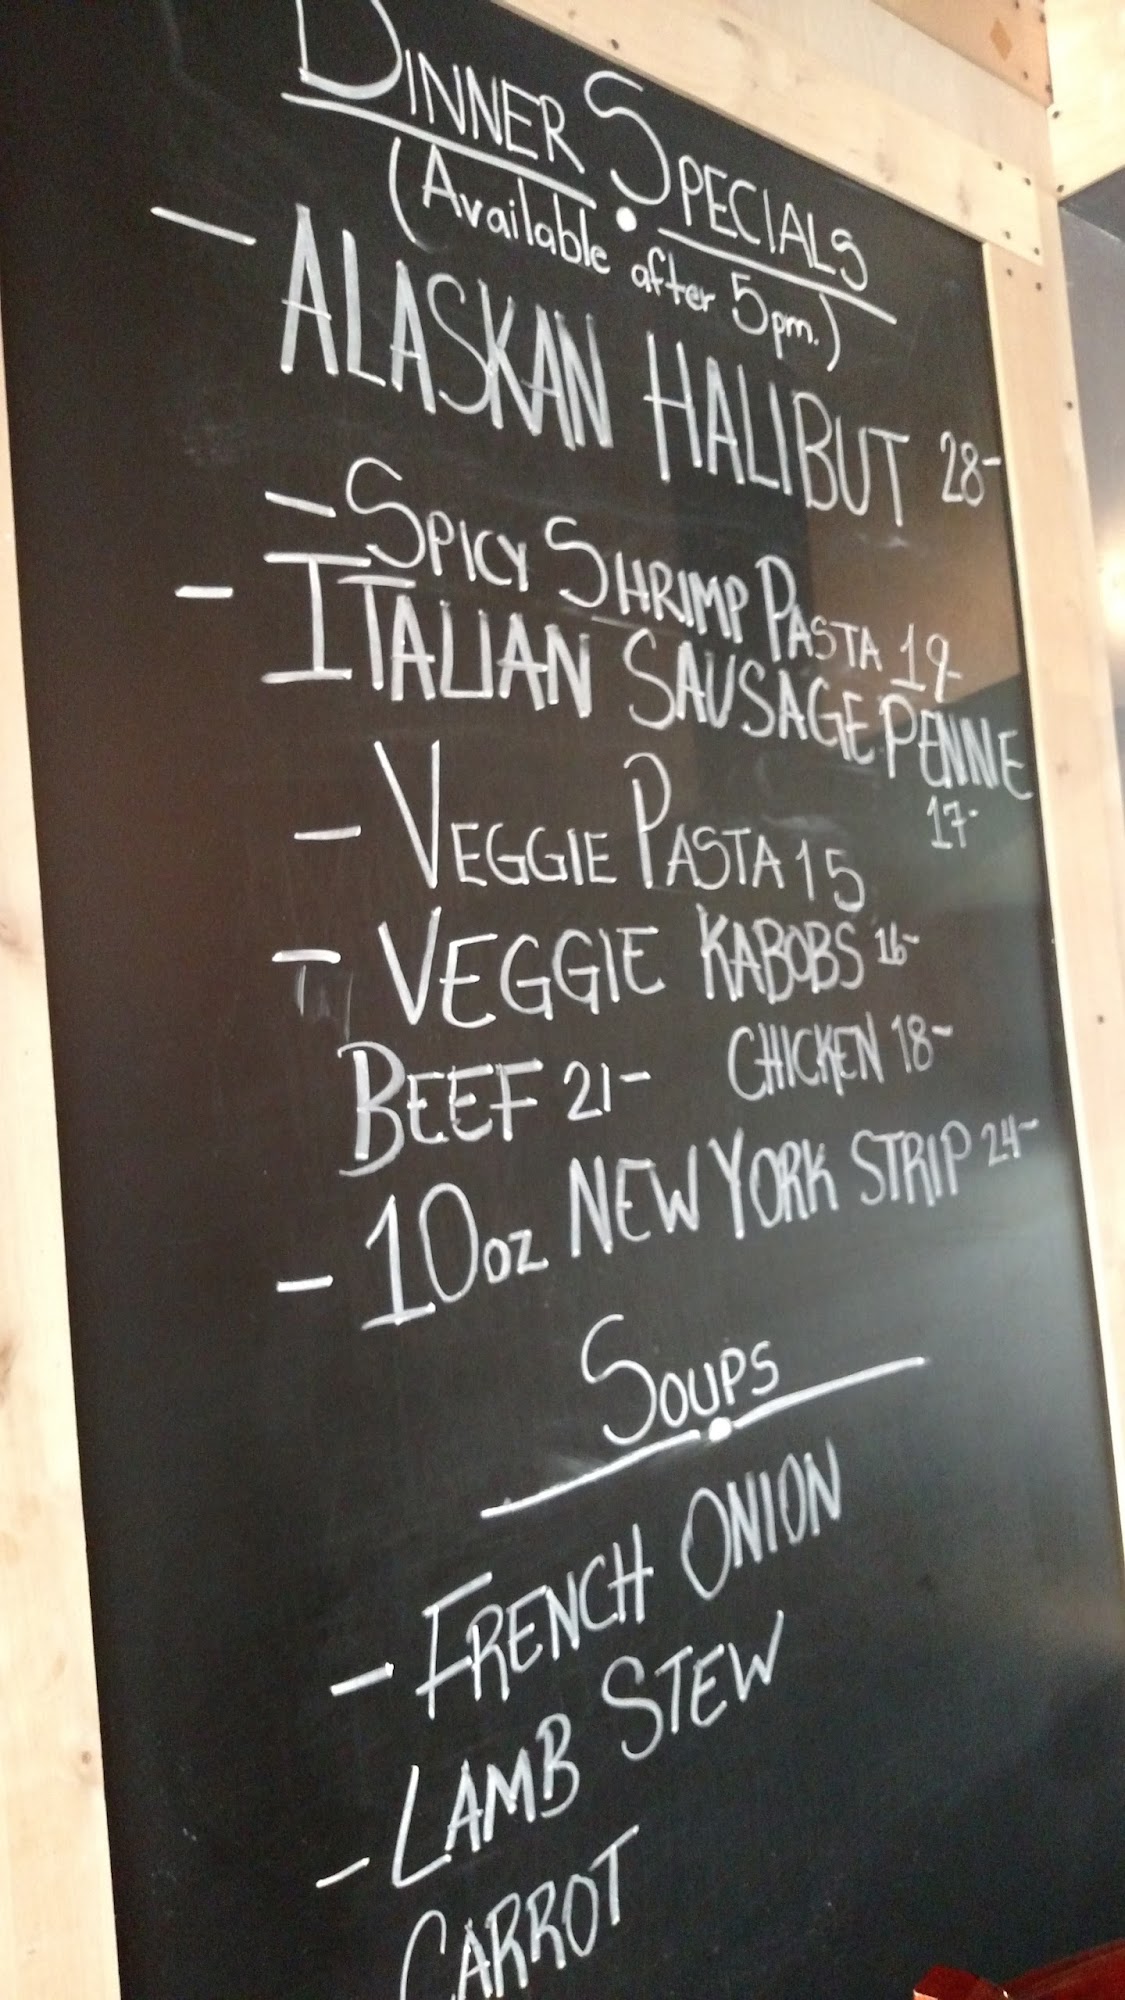 DINNER SPECIALS
(Available after 5pm.)
- ALASKAN HALIBUT 28-
- SPICY SHRIMP PASTA 19-
- ITALIAN SAUSAGE PENNE
17-
- VEGGIE PASTA 15
- VEGGIE KABOBS 16-
BEEF 21- CHICKEN 18-
- 10oz NEW YORK STRIP 24-
SOUPS
- FRENCH ONION
- LAMB STEW
CARROT